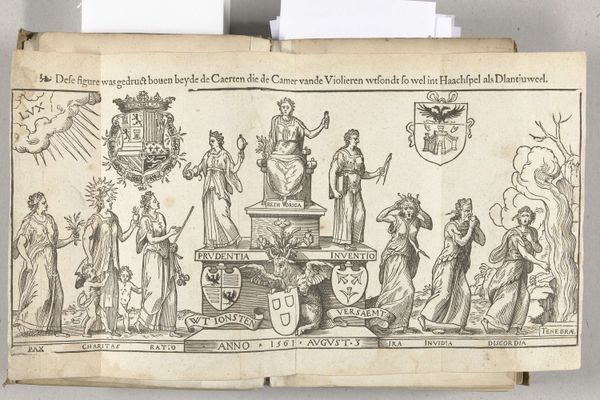 Dese figure was gedruct bouen beyde de Caerten die de Camer vande Violieren wtsondt so wel int Haachspel als Dlantjuweel.
LVX
RETH VORICA
PRUDENTIA INVENTIO
WT IONSTEN VERSAEMT
TENEBRÆ
PAX CHARITAS RATIO ANNO 1561 · AVGVST · 3 IRA INVIDIA DISCORDIA